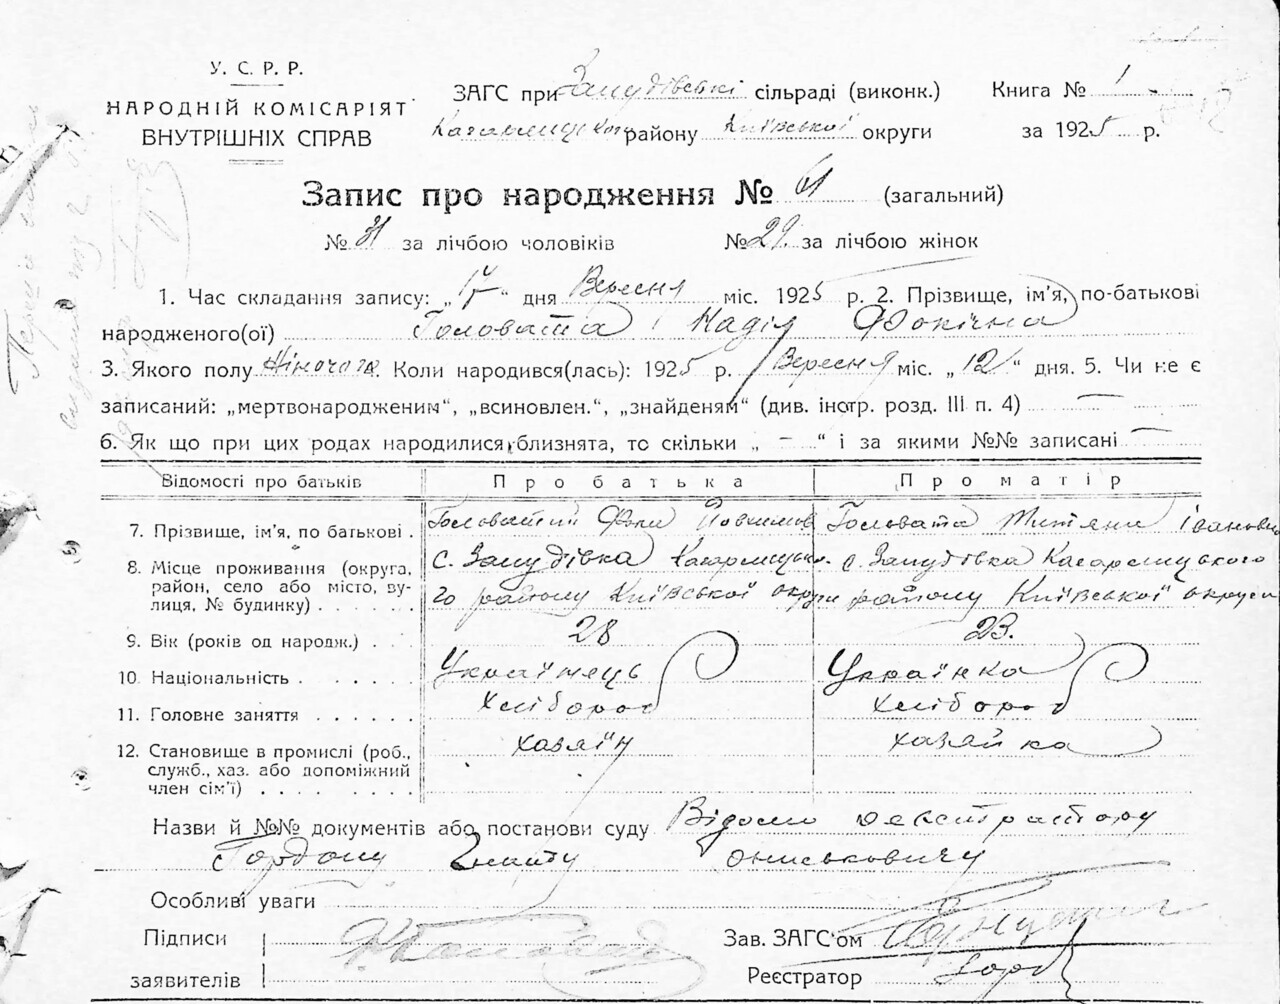 У. С. Р. Р.
НАРОДНІЙ КОМІСАРІЯТ
ВНУТРІШНІХ СПРАВ
ЗАГС при Запудівські сільраді (виконк.) Книга № 1
Кагарлицького району Київської округи за 1925 р.
Запис про народження № 61 (загальний)
№ 31 за лічбою чоловіків № 29. за лічбою жінок
1. Час складання запису: „17“ дня Вересня міс. 1925 р. 2. Прізвище, ім'я, по-батькові
народженого(ої) Головата Надія Фокієна
3. Якого полу Жіночого. Коли народився(лась): 1925 р. Вересня міс. „12“ дня. 5. Чи не є
записаний: „мертвонародженим“, „всиновлен.“, „знайденям“ (див. інстр. розд. III п. 4) —
6. Як що при цих родах народилися близнята, то скільки „ — “ і за якими №№ записані —
Відомості про батьків Про батька Про матір
7. Прізвище, ім'я, по батькові . Головатий Фока Головата Титяна Іванови
8. Місце проживання (округа, район, село або місто, вулиця, № будинку) . . . . . . с. Запудівка Кагарлицько- с. Запудівка Кагарлицького
го району Київської округи району Київської округи
9. Вік (років од народж.) . . . 28 23.
10. Національність . . . . . . Українець Українка
11. Головне заняття . . . . . . Хлібороб хлібороб
12. Становище в промислі (роб., хазяїн хазяйка
служб., хаз. або допоміжний
член сім'ї) . . . . . . . .
Назви й №№ документів або постанови суду Відомо реєстратору
Гордому Гнату Ониськовичу
Особливі уваги
Підписи Зав. ЗАГС'ом
заявителів Реєстратор